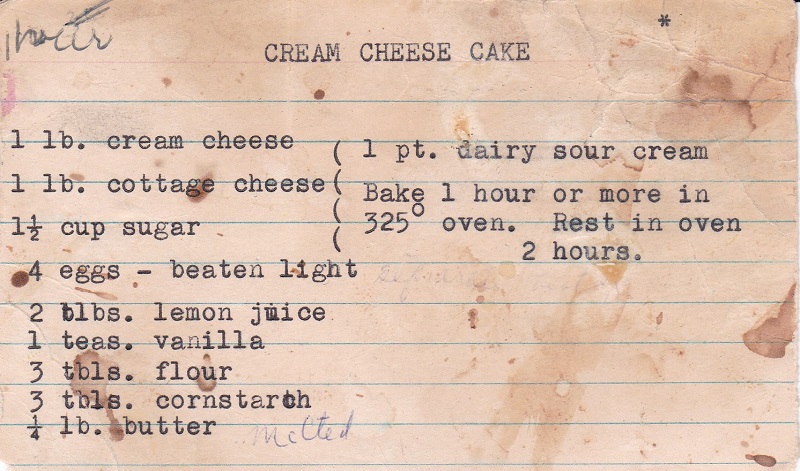 *
CREAM CHEESE CAKE
1 lb. cream cheese
1 lb. cottage cheese
1½ cup sugar
4 eggs - beaten light
2 tlbs. lemon juice
1 teas. vanilla
3 tbls. flour
3 tbls. cornstarch
¼ lb. butter melted
( 1 pt. dairy sour cream
( Bake 1 hour or more in
( 325° oven. Rest in oven
( 2 hours.